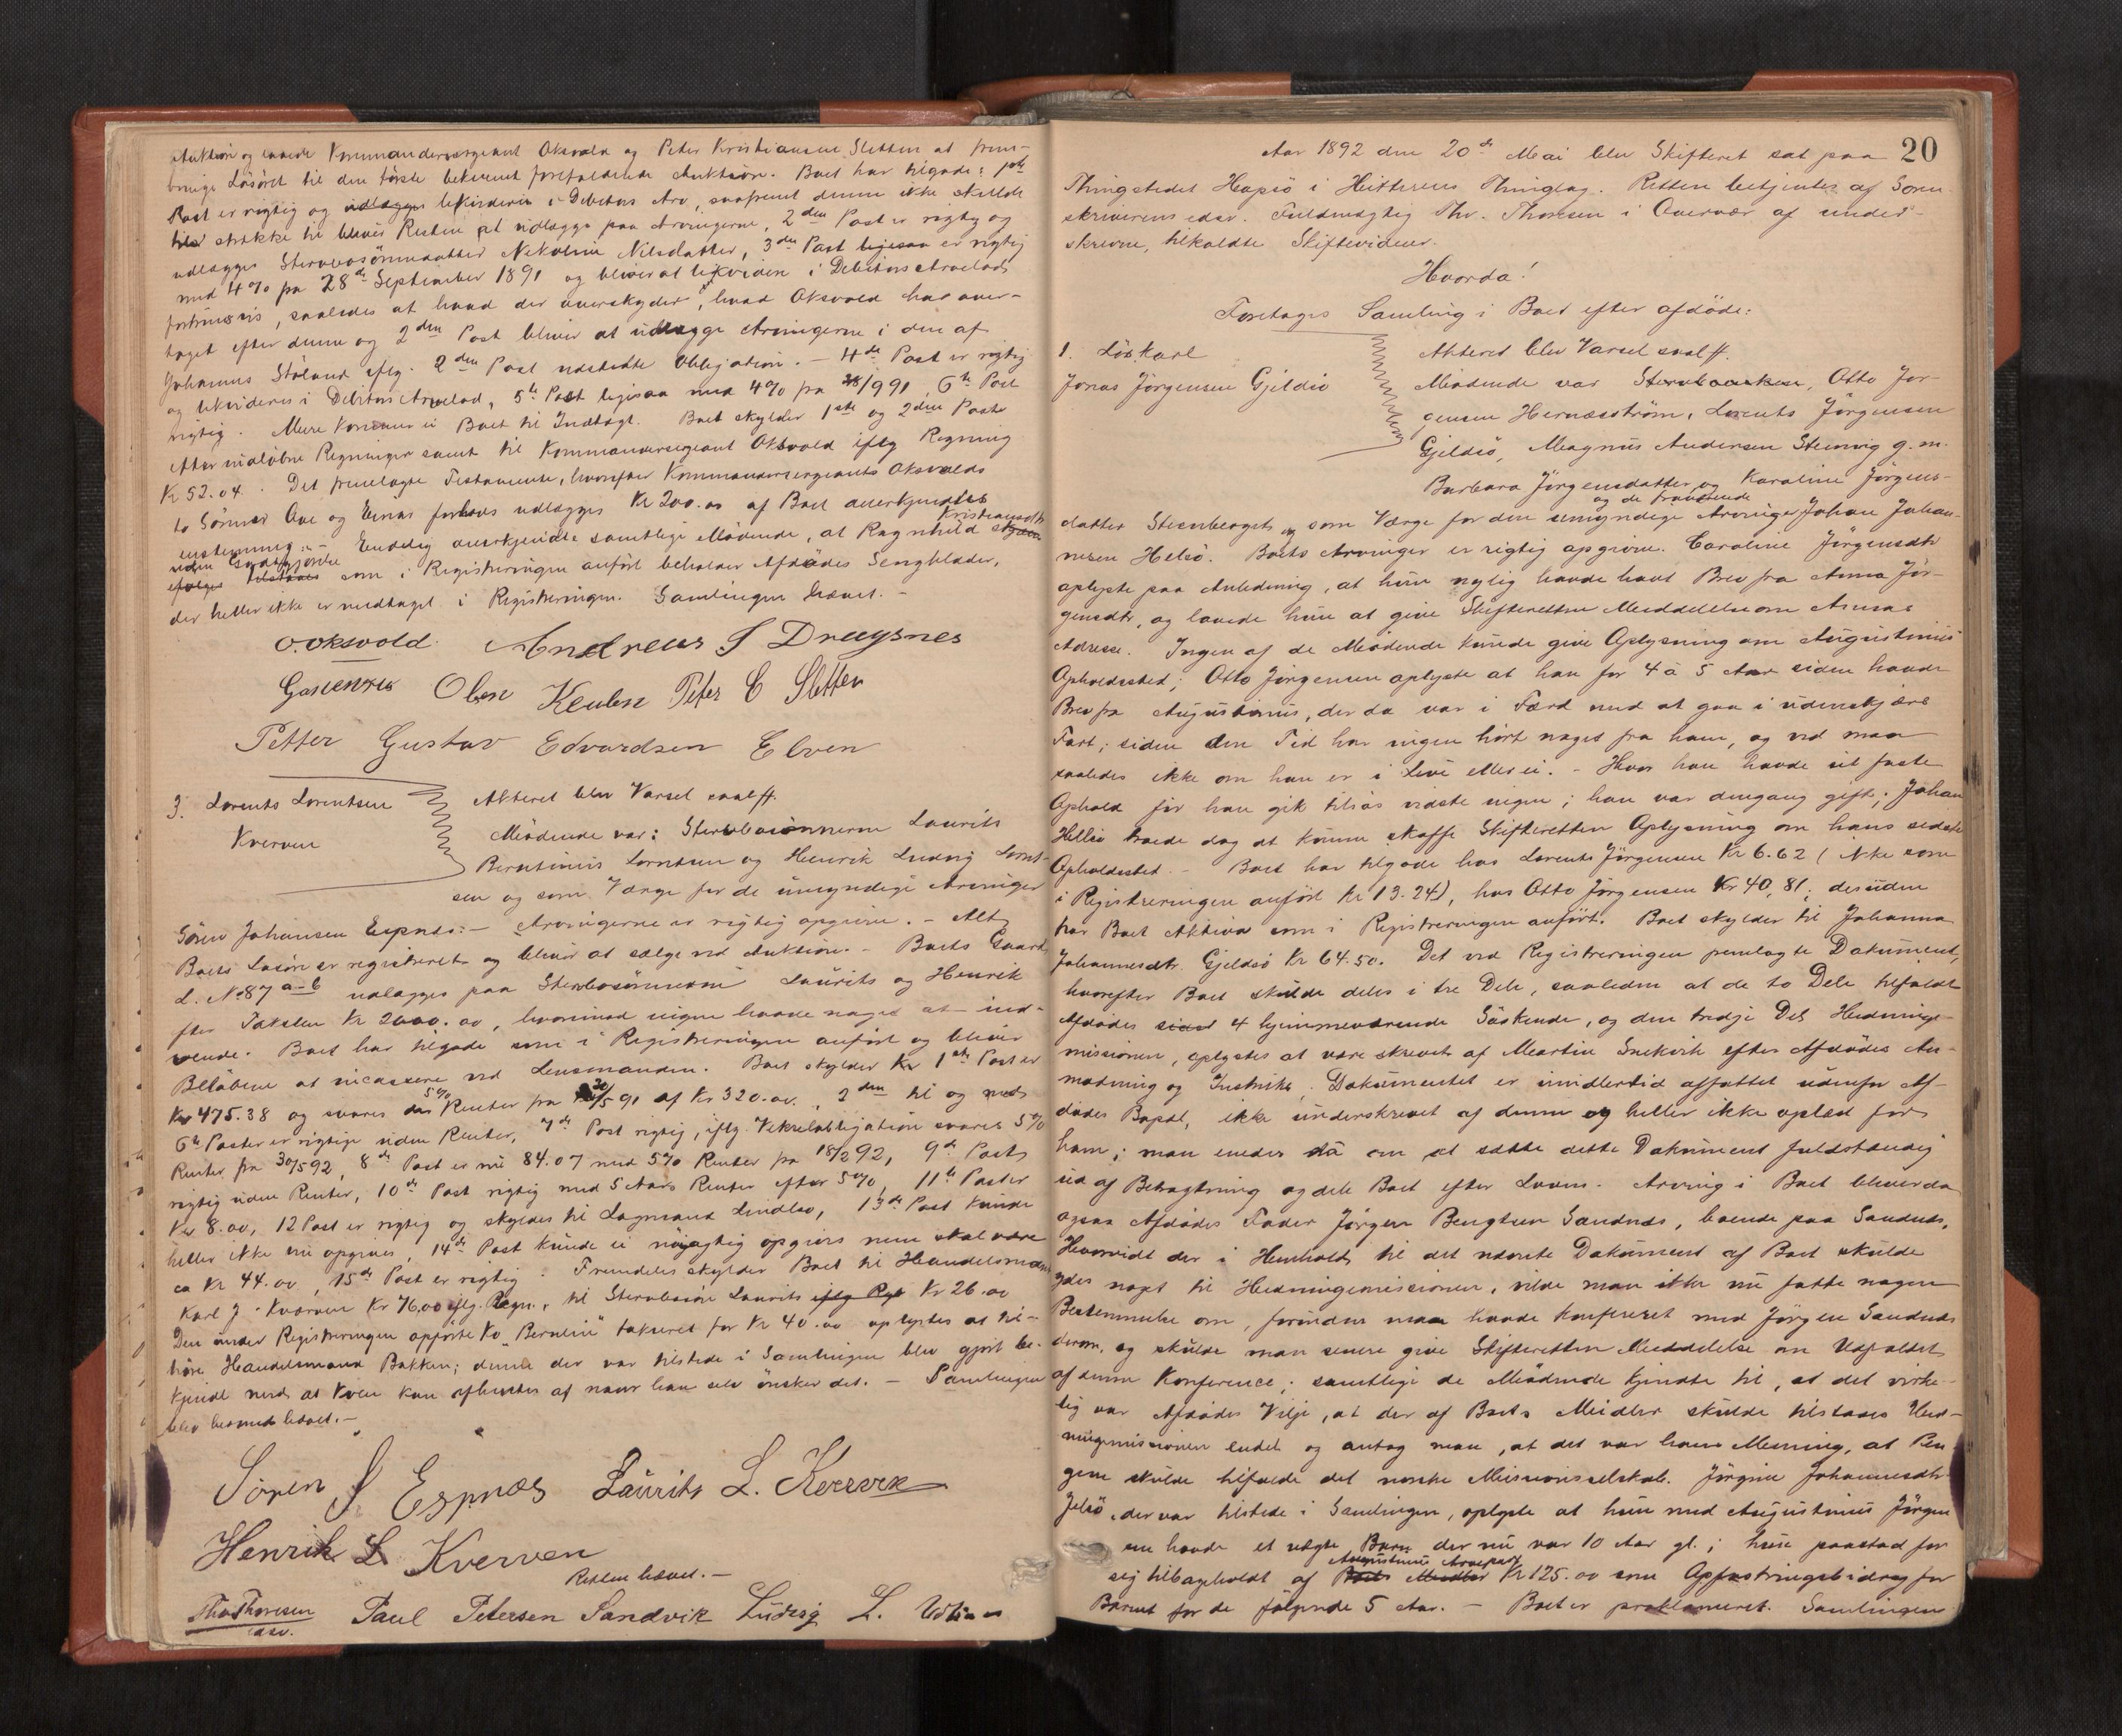 Auktion og lovede Kommandersergeant Oksvold og Peter Kristiansen Sletten at frem-
bringe Løsøret til den første bekvemt forefaldende Auktion. Boet har tilgode: 1ste
Post er rigtig og udlægges likvideres i Debitors Arv, saafremt denne ikke skulde
strække til bliver Resten at udlægge paa Arvingerne, 2den Post er rigtig og
udlægges Sterbosønnedatter Nikoline Nilsdatter, 3die Post ligesaa er rigtig
med 4% fra 28de September 1891 og bliver at likvidere i Debitors Arvelod
fortrinsvis, saaledes at hvad der overskyder, hvad Oksvold har over-
taget efter denne og 2den Post bliver at udlægge Arvingerne i den af
Johannes Støland iflg. 2den Post udstedte Obligation. – 4de Post er rigtig
og likvideres i Debitors Arvelod, 5te Post ligesaa med 4% fra 28/9 91, 6te Post
rigtig. Mere kommer ei Boet til Indtægt. Boet skylder 1ste og 2den Post
efter indløbne Regninger samt til Kommandersergeant Oksvold iflg Regning
Kr 52.04. Det fremlagte Testamente, hvorefter Kommandersergeants Oksvolds
to Sønner Ove og Einar forlods udlægges Kr 200.00 af Boet anerkjendtes
enstemmig. – Endelig anerkjendte samtlige Mødende, at Ragnhild Kristiansdtr
uden Godtgjørelse som i Registreringen anført beholder Afdødes Sengklæder,
der heller ikke er medtaget i Registreringen. Samlingen hævet. –
O. Oksvold Andreas J Draysnes
Olsen Peter C Sletten
Petter Gustav Edvardsen Elven
3. Lorents Lorentsen
Kverven
Akteret blev Varsel saalt.
Mødende var: Sterbosønnerne Laurits
Berntinius Lorntsen og Henrik Ludvig Lornt-
sen og som Værge for de umyndige Arvinger
Søren Johansen Espnæs: – Arvingerne er rigtig opgivne. – Alt
Boets Løsøre er registreret og bliver at sælge ved Auktion. – Boets Gaard
L. No 87 a-b udlægges paa Sterbosønnerne Laurits og Henrik
for Taksten Kr 2000.00, hvorimod ingen havde noget at ind-
vende. Boet har tilgode som i Registreringen anført og bliver
Beløbene at incassere ved Lensmanden. Boet skylder Kr 1ste Post er
Kr 475.38 og svares der 5% Renter fra 30/5 91 af Kr 320.00., 2den til og med
6te Poster er rigtige uden Renter, 7de Post rigtig, iflg. Vekselobligation svares 5%
Renter fra 30/5 92, 8de Post er nu 84.07 med 5% Renter fra 18/2 92, 9de Post
rigtig uden Renter, 10de Post rigtig med 5 Aars Renter efter 5%, 11te Post er
Kr 8.00, 12 Post er rigtig og skyldes til Lagmand Lindløv, 13de Post kunde
heller ikke nu opgives, 14de Post kunde ei nøiagtig opgives men skal være
ca Kr 44.00, 15de Post er rigtig. Fremdeles skylder Boet til Handelsmand
Karl J. Kverven Kr 76.00 iflg. Regn., til Sterbosøn Laurits iflg Rg. Kr 26.00
Den under Registreringen opførte Ko "Berulin" takseret for Kr 40.00 oplystes at til-
høre Handelsmand Bakken; denne der var tilstede i Samlingen blev gjort be-
kjendt med at Koen kan afhentes af naar han selv ønsker det. – Samlingen
blev hermed hævet. –
Søren J Espnæs Laurits L. Kverven
Henrik L Kverven
Retten hævet. –
Thv Thoresen Paul Petersen Sandvik Ludvig L.
edsv.
20
Aar 1892 den 20de Mai blev Skifteret sat paa
Thingstedet Hopsjø i Hitterens Thinglag. Retten betjentes af Soren-
skriverens edsv. Fuldmægtig Thv. Thoresen i Overvær af under-
skrevne, tilkaldte Skiftevidner.
Hvorda!
Foretages Samling i Boet efter afdøde:
1. Løskarl
Jonas Jørgensen Gjeldsø
Akteret blev Varsel saalt.
Mødende var Sterbosøsken, Otto Jør-
gensen Hernæsstrøm, Lorents Jørgensen
Gjeldsø, Magnus Andersen Stenvig g. m.
Barbara Jørgensdatter og Karoline Jørgens-
datter Steenberget og som Værge for den umyndige og de fraværende Arvinge Johan Johan-
nesen Helsø. Boets Arvinger er rigtig opgivne. Caroline Jørgensdtr
oplyste paa Anledning, at hun nylig havde havt Brev fra Anna Jør-
gensdtr, og lovede hun at give Skifteretten Meddelelse om Annas
Adresse. Ingen af de Mødende kunde give Oplysning om Augustinius
Opholdssted; Otto Jørgensen oplyste at han for 4 à 5 Aar siden havde
Brev fra Augustinius, der da var i Færd med at gaa i udenskjærs
Fart; siden den Tid har ingen hørt noget fra ham, og ved man
saaledes ikke om han er i Live eller ei. – Hvor han havde sit faste
Ophold før han gik tilsøs vidste ingen; han var dengang gift; Johan
Helsø troede dog at kunne skaffe Skifteretten Oplysning om hans sidste
Opholdssted. – Boet har tilgode hos Lorents Jørgensen Kr 6.62 (ikke som
i Registreringen anført kr 13.24), hos Otto Jørgensen Kr 40,81; desuden
har Boet Aktiva som i Registreringen anført. Boet skylder til Johanna
Johannesdtr. Gjeldsø Kr 64.50. Det ved Registreringen fremlagte Dokument,
hvorefter Boet skulde deles i tre Dele, saaledes at de to Dele tilfaldt
Afdødes 4 hjemmeværende Søskende, og den tredje Del Hedninge-
missionen, oplystes at være skrevet af Martin Snekvik efter Afdødes An-
modning og Instruks. Dokumentet er imidlertid affattet udenfor Af-
dødes Bopæl, ikke underskrevet af denne og heller ikke oplæst for
ham; man enedes da om at sætte dette Dokument fuldstændig
ud af Betragtning og dele Boet efter Loven. Arving i Boet bliver da
ogsaa Afdødes Fader Jørgen Bengtsen Sandnæs, boende paa Sandnæs.
Hvorvidt der i Henhold til det nævnte Dokument af Boet skulde
ydes noget til Hedningemissionen, vilde man ikke nu fatte nogen
Bestemmelse om, forinden man havde konfereret med Jørgen Sandnæs
derom, og skulde man senere give Skifteretten Meddelelse om Udfaldet
af denne Konference; samtlige de Mødende kjendte til, at det virke-
lig var Afdødes Vilje, at der af Boets Midler skulde tilstaaes Hed-
ningemissionen endel og antog man, at det var hans Mening, at Pen
gene skulde tilfalde det norske Missionsselskab. Jørgine Johannesdtr
Jelsø, der var tilstede i Samlingen, oplyste at hun med Augustinius Jørgen
sen havde et uægte Barn der nu var 10 Aar gl.; hun paastod for
sig tilbageholdt af Boets Midler Augustinius Arvepart Kr 125.00 som Opfostringsbidrag for
Barnet for de følgende 5 Aar. – Boet er proklameret. Samlingen